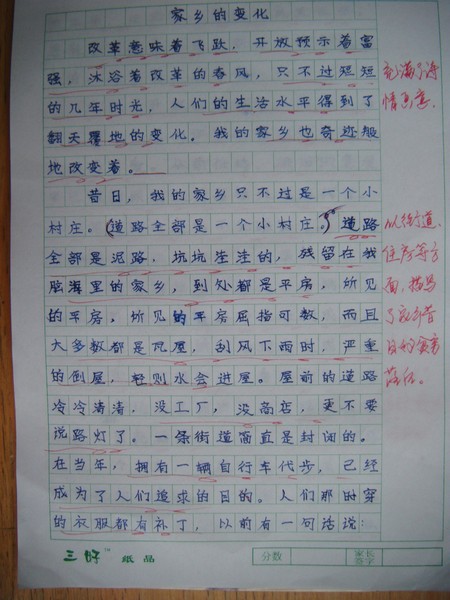 家乡的变化
改革意味着飞跃，开放预示着富
强，沐浴着改革的春风，只不过短短
的几年时光，人们的生活水平得到了
翻天覆地的变化。我的家乡也奇迹般
地改变着。
充满了诗
情画意。
昔日，我的家乡只不过是一个小
村庄。（道路全部是一个小村庄。）道路
全部是泥路，坑坑洼洼的，残留在我
脑海里的家乡，到处都是平房，所见
的平房，所见的平房屈指可数，而且
大多数都是瓦屋，刮风下雨时，严重
的倒屋，轻则水会进屋。屋前的道路
冷冷清清，没工厂，没商店，更不要
说路灯了。一条街道简直是封闭的。
在当年，拥有一辆自行车代步，已经
成为了人们追求的目的。人们那时穿
的衣服都有补丁，以前有一句话说：
以街道、
住房等方
面，描写
了家乡昔
日的贫穷
落后。
三好™纸品
分数
家长
签字